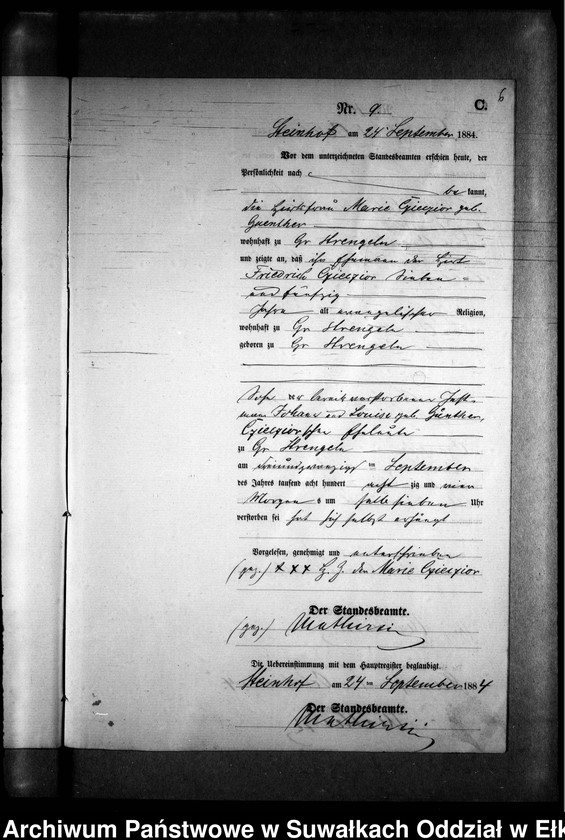 6
Nr. 9. C.
Steinhof am 24 September 1884.
Vor dem unterzeichneten Standesbeamten erschien heute, der
Persönlichkeit nach
be kannt,
die Hirtsfrau Marie geb.
Guenther
wohnhaft zu Gr Strengeln
und zeigte an, daß ihr Ehemann der Hirt
Friedrich sieben
und fünfzig
Jahre alt evangelischer Religion,
wohnhaft zu Gr Strengeln
geboren zu Gr Strengeln
Sohn der bereits verstorbenen
Johann und Louise geb. Günther,
Eheleute
zu Gr Strengeln
am dreiundzwanzigsten September
des Jahres tausend acht hundert acht zig und vier
Morgens um halb sieben Uhr
verstorben sei hat sich selbst erhängt
Vorgelesen, genehmigt und unterschrieben
(gez.) x x x H. Z. der Marie
Der Standesbeamte.
(gez.)
Die Uebereinstimmung mit dem Hauptregister beglaubigt.
Steinhof am 24 ten September 1884
Der Standesbeamte.
Archiwum Państwowe w Suwałkach Oddział w Ełk